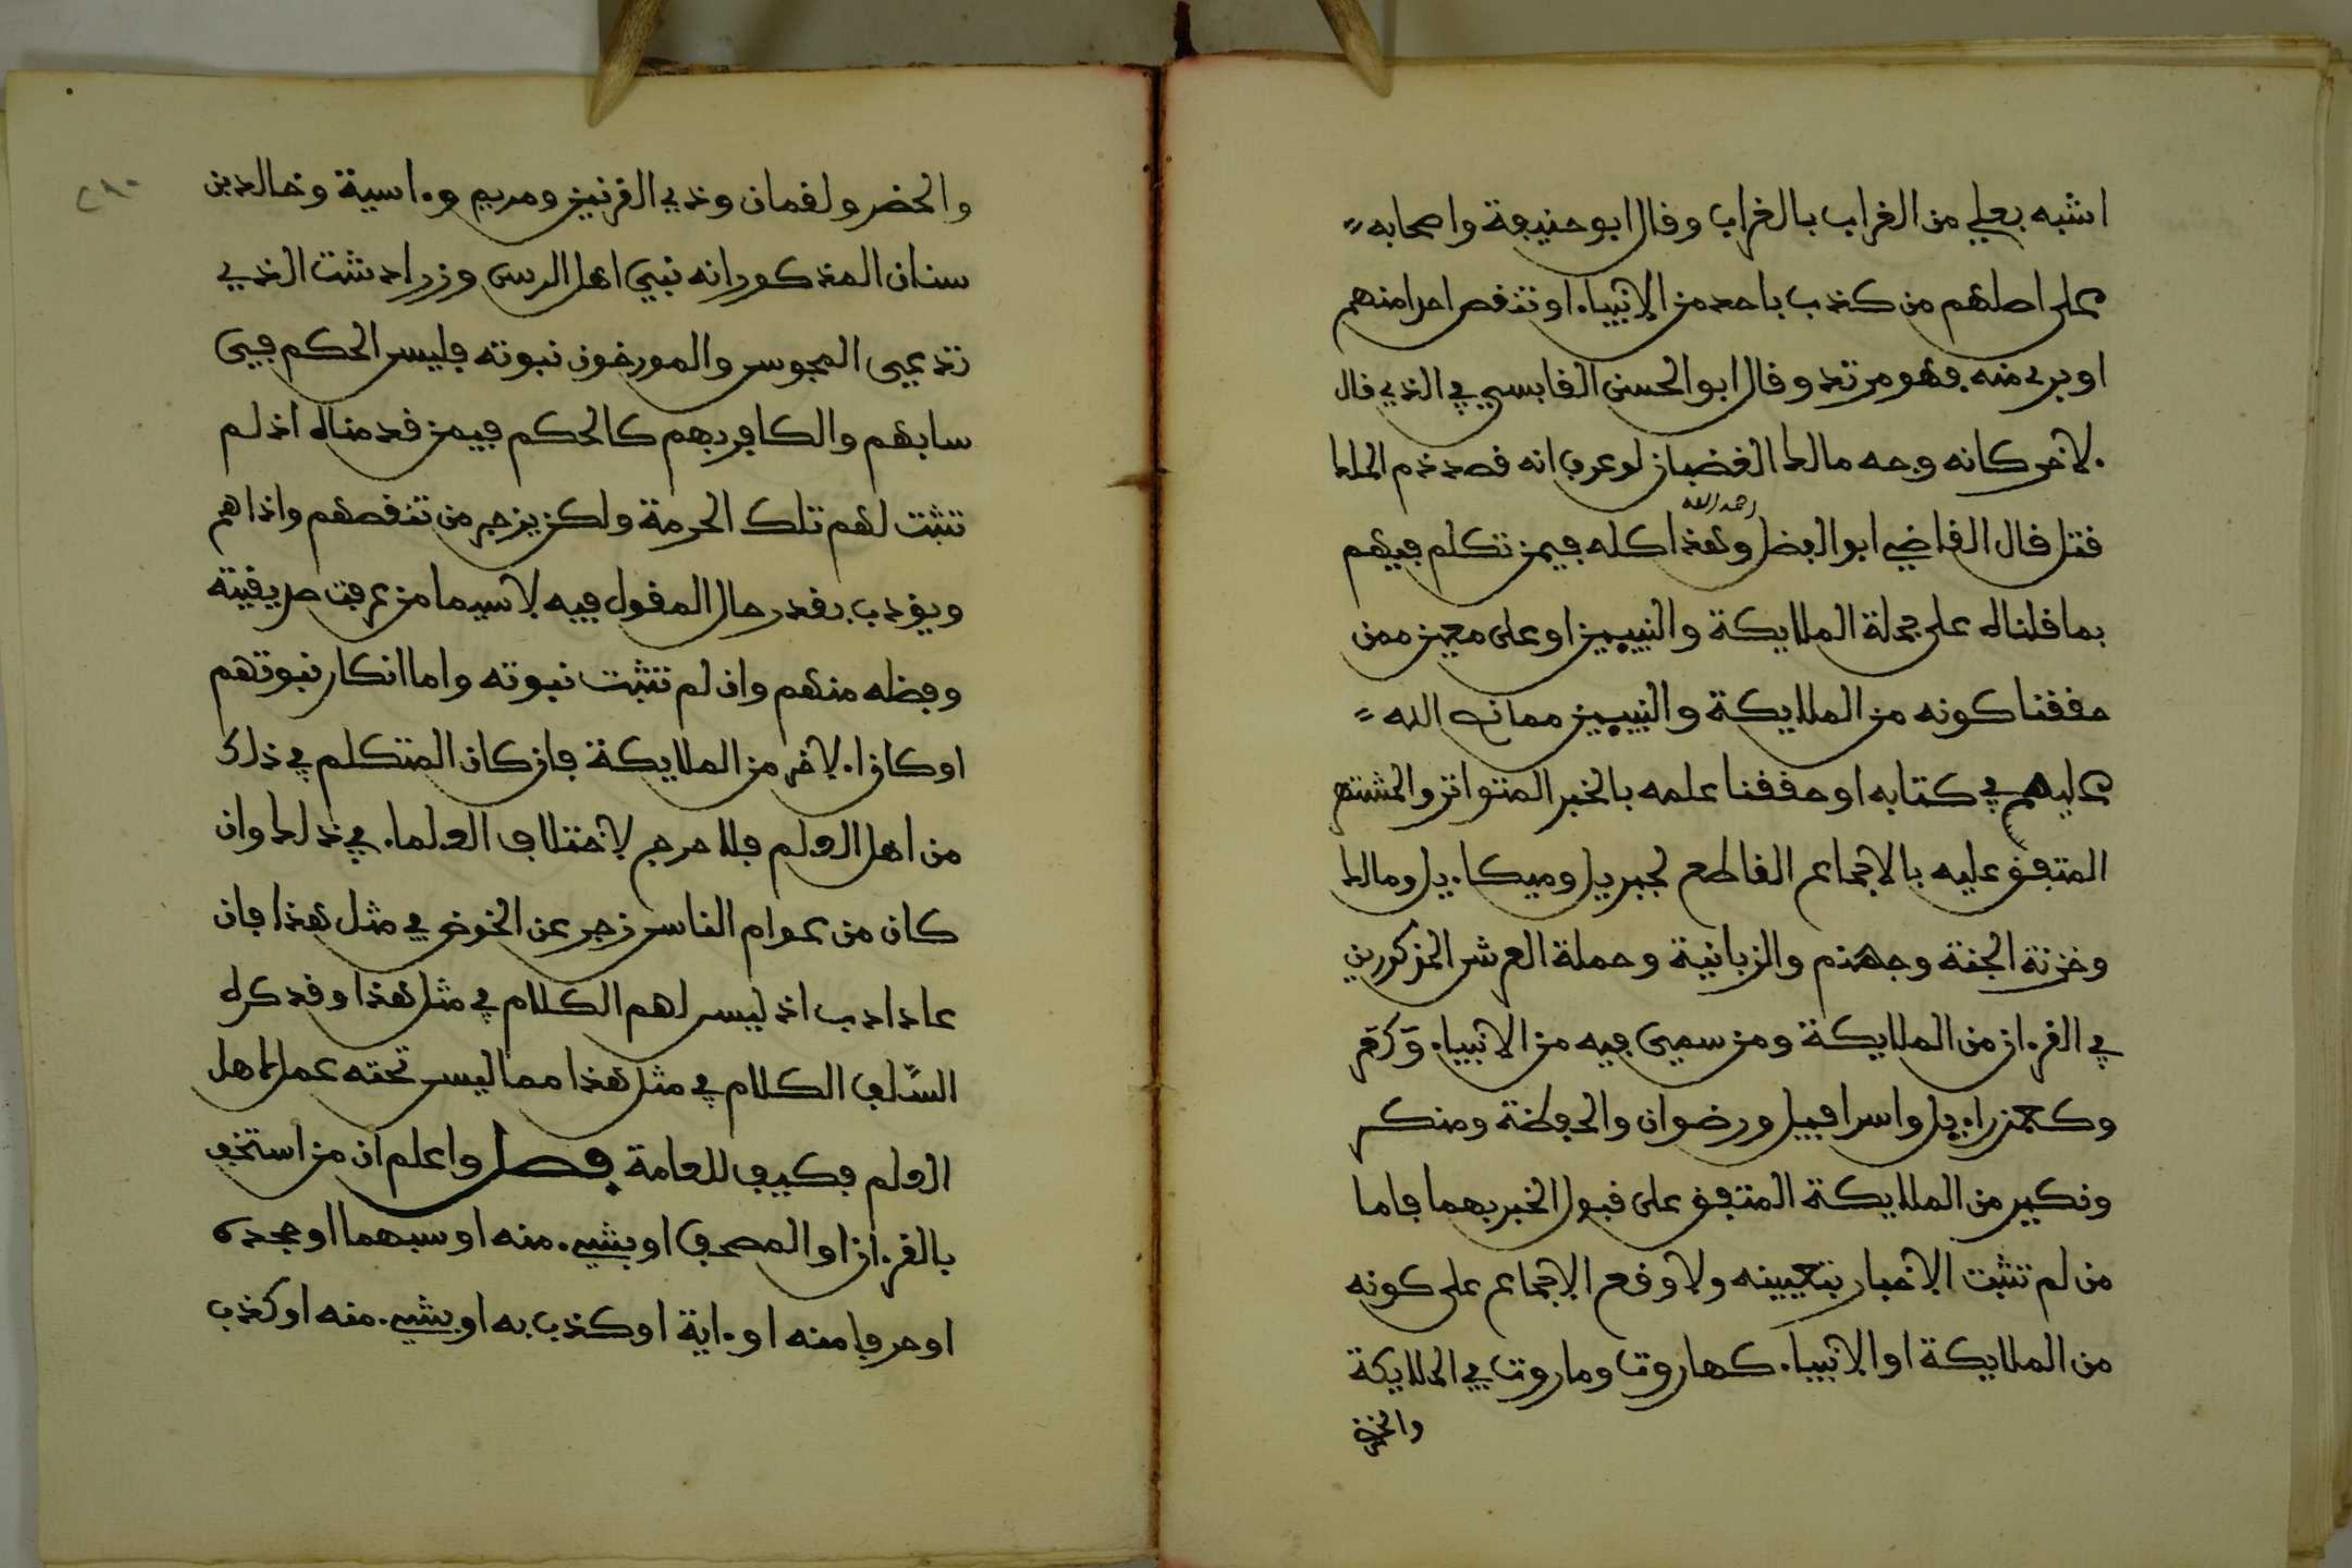 اشبه بعلي من الغراب بالغراب وقال ابو حنيفة واصحابه
على اصلهم من كذب باحد من الانبياء او تنقص احدا منهم
او برى منه فهو مرتد وقال ابو الحسن القابسي في الذي قال
لاخر كانه وجه مالك الغضبان لو عرف انه قصد ذم الملك
قتل قال القاضي ابو الفضل رحمه الله وهذا كله فيمن تكلم فيهم
بما قلناه على جملة الملايكة والنبيين او على معين ممن
حققنا كونه من الملايكة والنبيين ممن نص الله
عليهم في كتابه او حققنا علمه بالخبر المتواتر والمشتهر
المتفق عليه بالاجماع القاطع لجبريل وميكاءيل ومالك
وخزنة الجنة وجهنم والزبانية وحملة العرش المذكورين
في القرءان من الملايكة ومن سمي فيه من الانبياء
وكعزراءيل واسرافيل ورضوان والحفظة ومنكر
ونكير من الملايكة المتفق على قبول الخبر بهما فاما
من لم تثبت الاخبار بتعيينه ولا وقع الاجماع على كونه
من الملايكة او الانبياء كهاروت وماروت في الملايكة
والخضر
٢٨٠
والخضر ولقمان وذي القرنين ومريم وءاسية وخالد بن
سنان المذكور انه نبي اهل الرس وزرادشت الذي
تدعي المجوس والمورخون نبوته فليس الحكم في
سابهم والكافر بهم كالحكم فيمن قدمناه اذ لم
تثبت لهم تلك الحرمة ولكن يزجر من تنقصهم واذاهم
ويؤدب بقدر حال المقول فيه لا سيما من عرفت صديقيته
وفضله منهم وان لم تثبت نبوته واما انكار نبوتهم
او كان الاخر من الملايكة فان كان المتكلم في ذلك
من اهل العلم فلا حرج لاختلاف العلماء في ذلك وان
كان من عوام الناس زجر عن الخوض في مثل هذا فان
عاد ادب اذ ليس لهم الكلام في مثل هذا وقد كره
السّلف الكلام في مثل هذا مما ليس تحته عمل لاهل
العلم فكيف للعامة فصل واعلم ان من استخف
بالقرءان او المصحف او بشيء منه او سبهما او جحده
او حرفا منه او ءاية او كذب به او بشيء منه او كذب